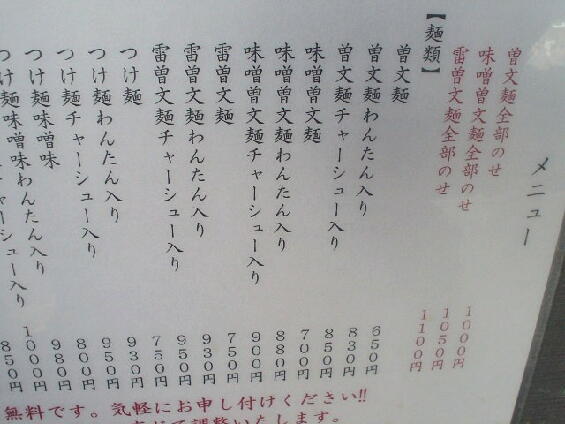 メニュー
曽文麺全部のせ 1000円
味噌曽文麺全部のせ 1050円
雷曽文麺全部のせ 1100円
【麺類】
曽文麺 650円
曽文麺わんたん入り 830円
曽文麺チャーシュー入り 850円
味噌曽文麺 700円
味噌曽文麺わんたん入り 880円
味噌曽文麺チャーシュー入り 900円
雷曽文麺 750円
雷曽文麺わんたん入り 930円
雷曽文麺チャーシュー入り 950円
つけ麺 750円
つけ麺わんたん入り 930円
つけ麺チャーシュー入り 950円
つけ麺味噌味 800円
つけ麺味噌味わんたん入り 980円
つけ麺味噌味チャーシュー入り 1000円
850円
無料です。気軽にお申し付けください!!
じて調整いたします。